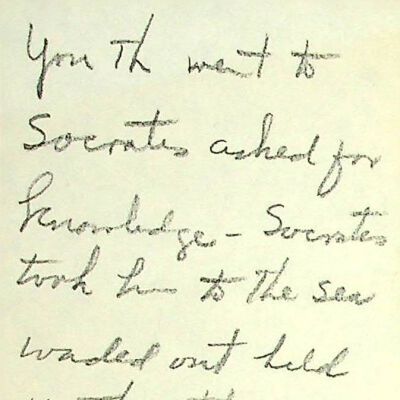 You Th went to
Socrates asked for
knowledge - Socrates
took him to The sea
waded out held